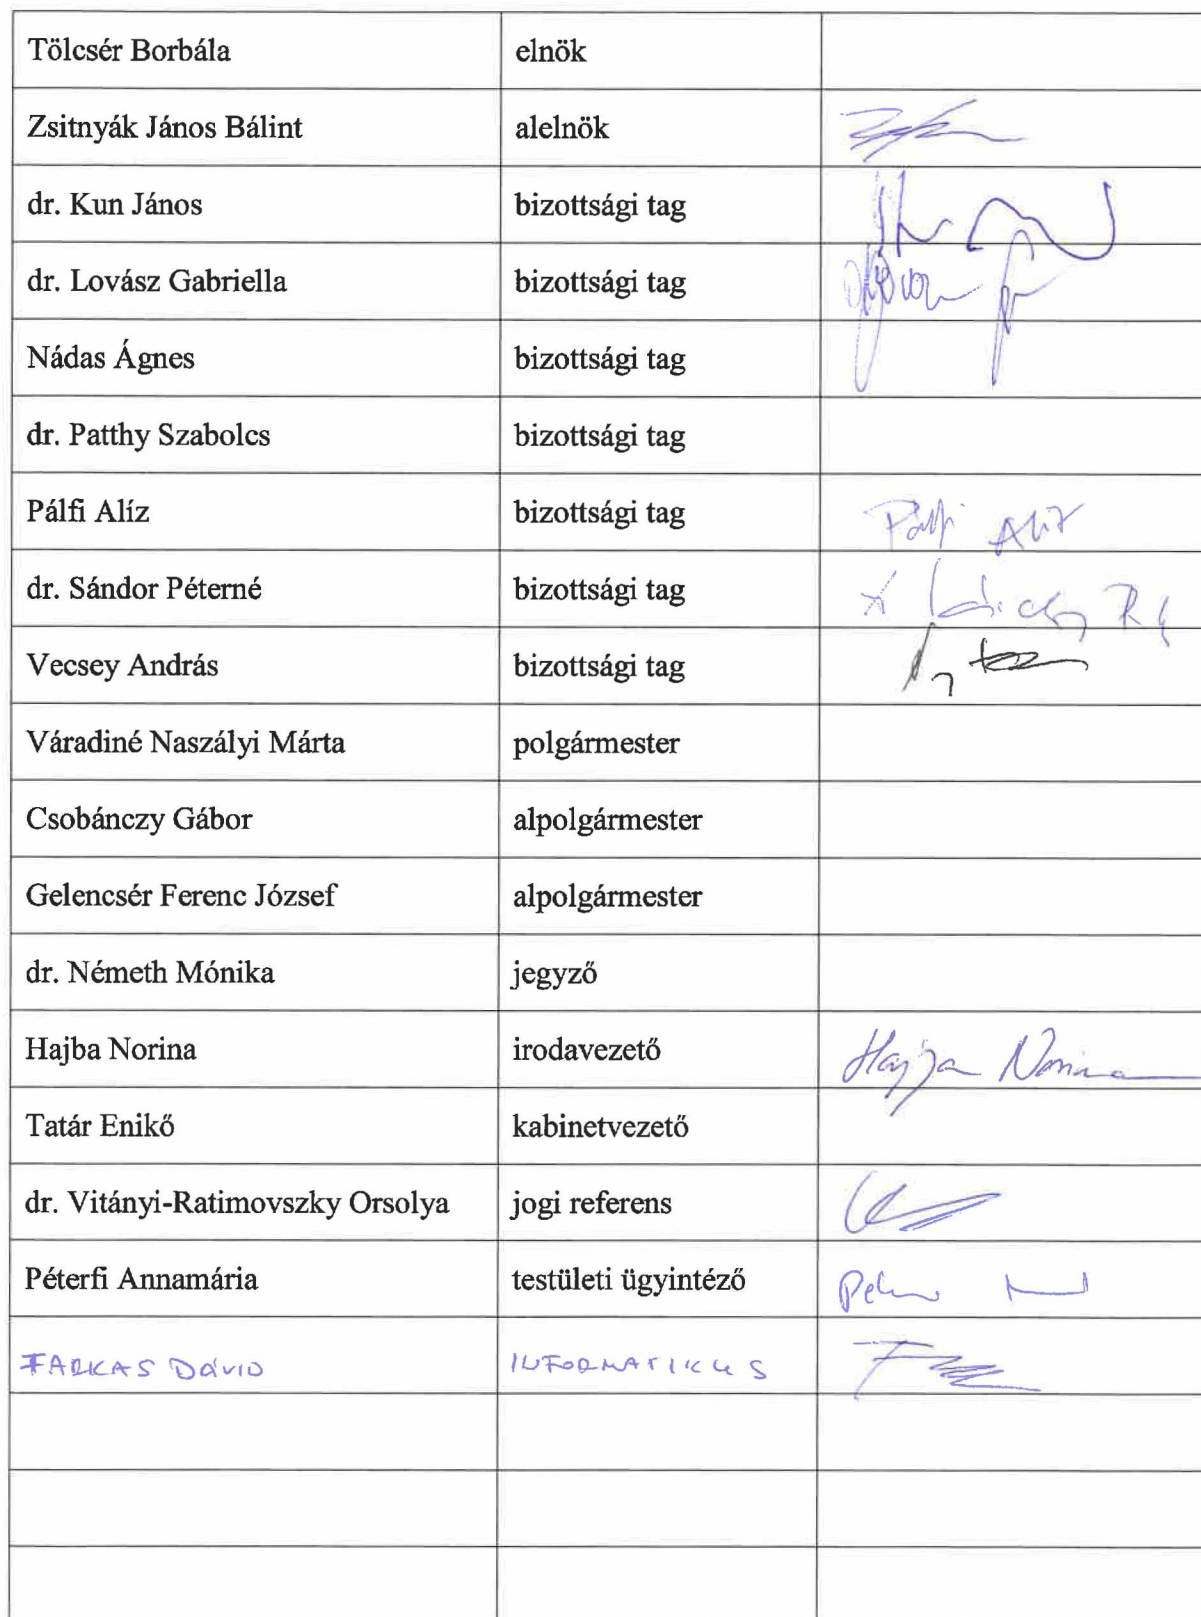 Tölcsér Borbála elnök
Zsitnyák János Bálint alelnök
dr. Kun János bizottsági tag
dr. Lovász Gabriella bizottsági tag
Nádas Ágnes bizottsági tag
dr. Patthy Szabolcs bizottsági tag
Pálfi Alíz bizottsági tag Pálfi Alíz
dr. Sándor Péterné bizottsági tag
Vecsey András bizottsági tag
Váradiné Naszályi Márta polgármester
Csobánczy Gábor alpolgármester
Gelencsér Ferenc József alpolgármester
dr. Németh Mónika jegyző
Hajba Norina irodavezető Hajba Norina
Tatár Enikő kabinetvezető
dr. Vitányi-Ratimovszky Orsolya jogi referens
Péterfi Annamária testületi ügyintéző
FARKAS DÁVID INFORMATIKUS